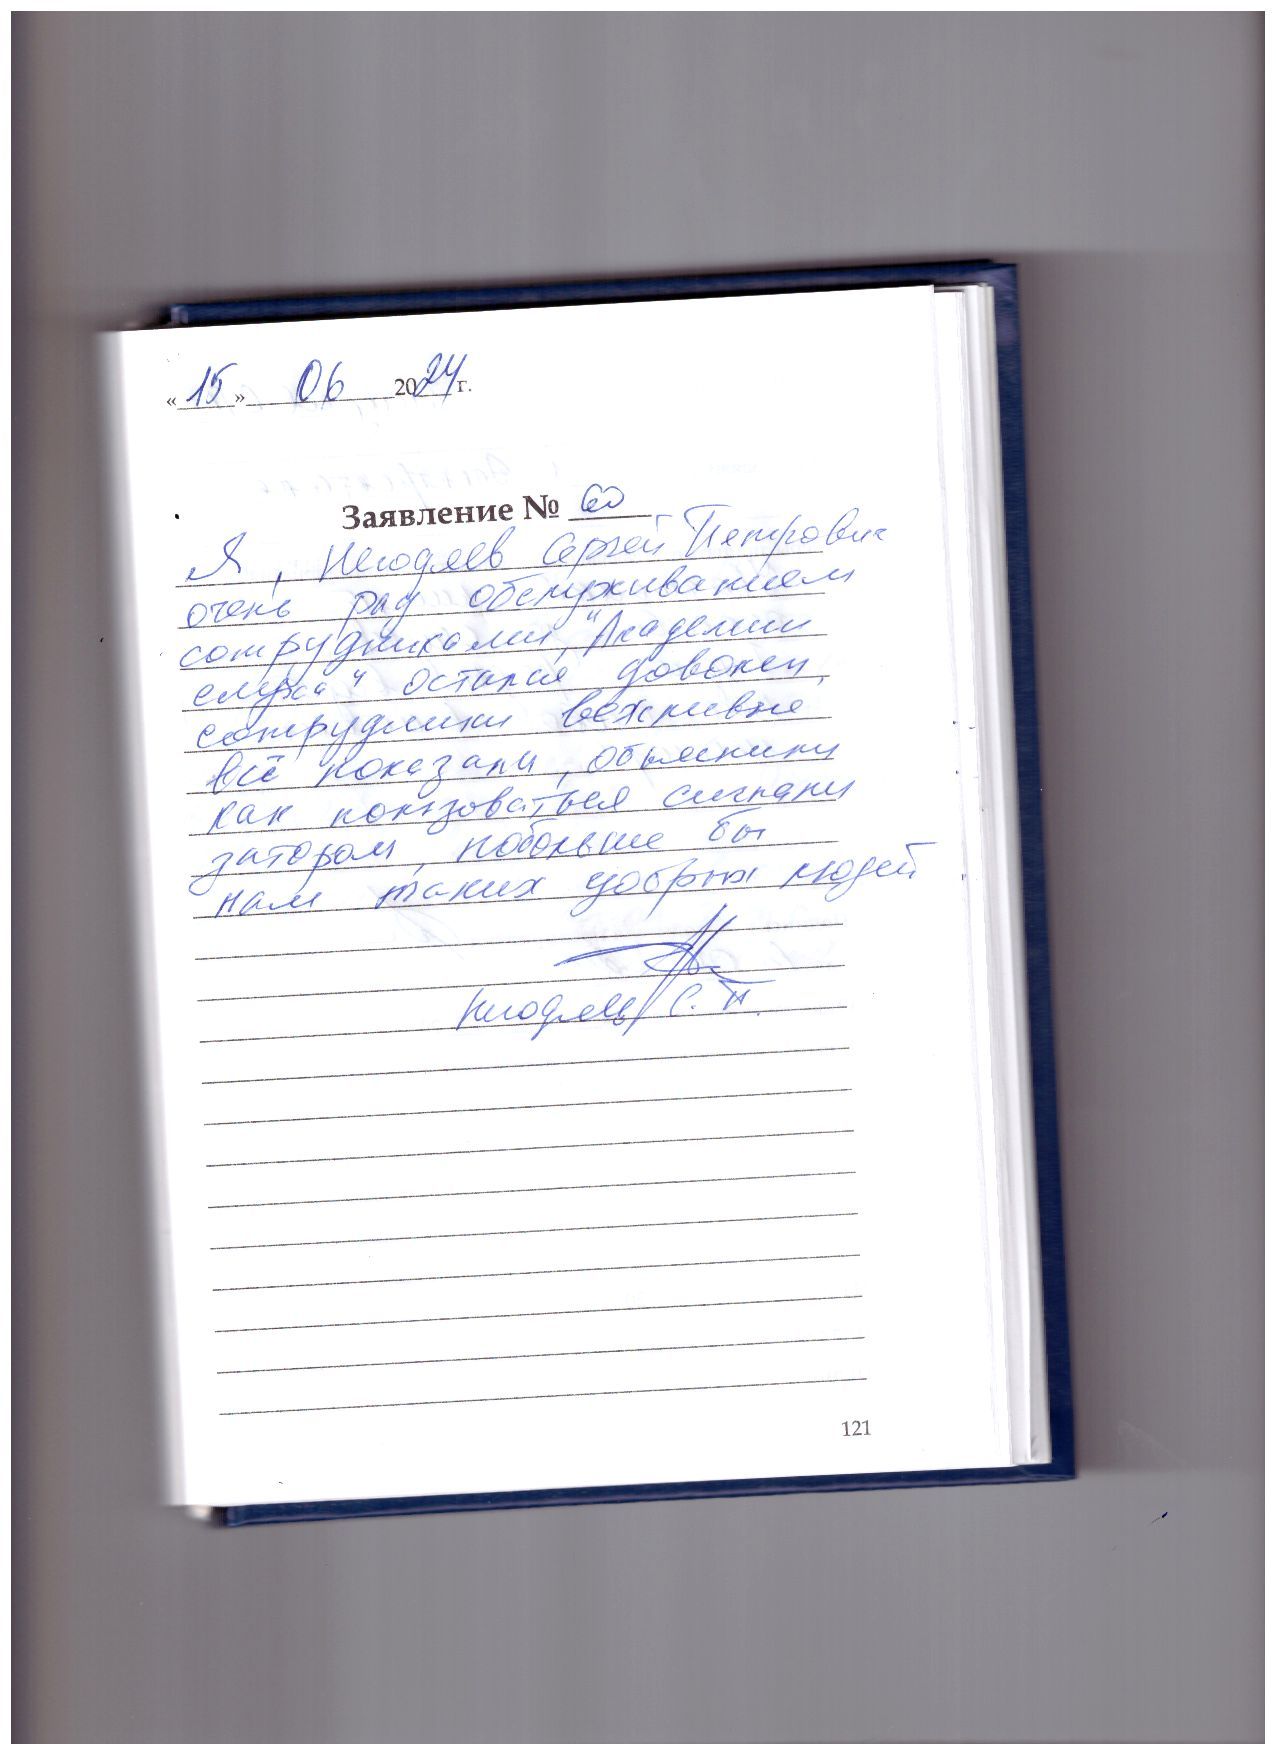 «15» 06 2024 г.
Заявление № 60
Я, Негодяев Сергей Петрович
очень рад обслуживанием
сотрудниками, "Академии
слуха" остался доволен,
сотрудники вежливые
всё показали, объяснили
как пользоваться сигнали
затором, побольше бы
нам таких добрых людей
Негодяев С. П.
121